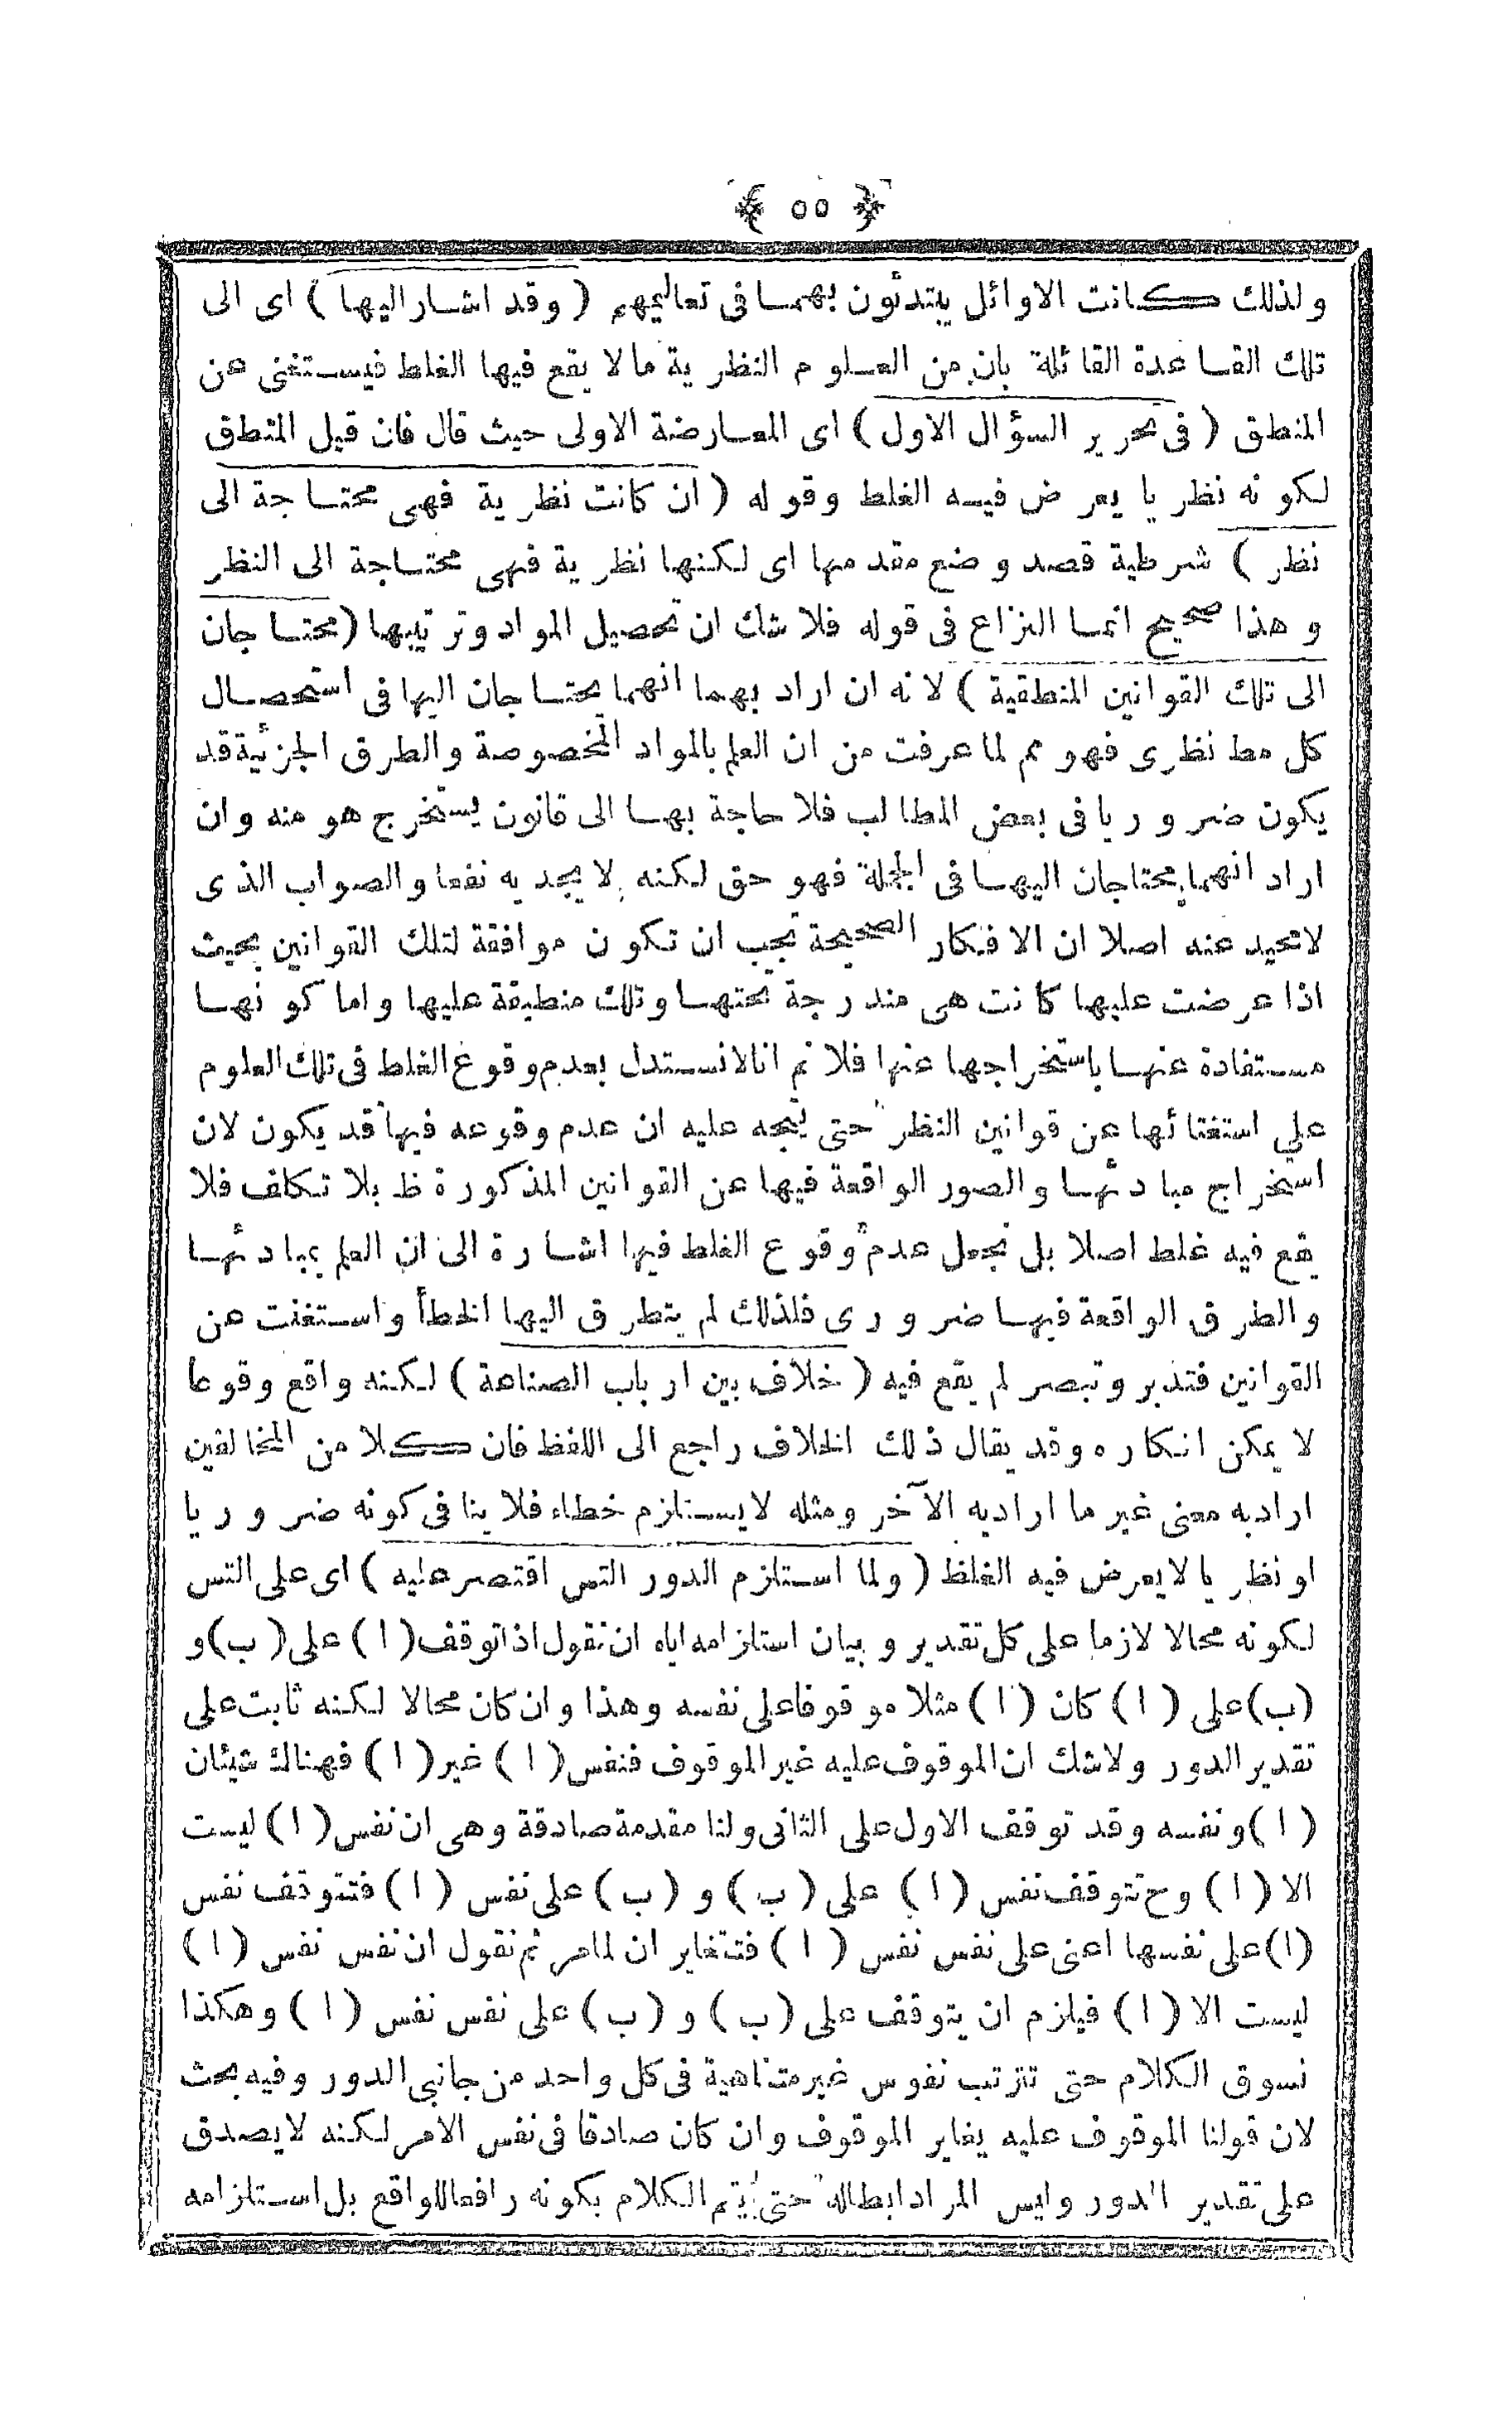 ﴿ ٥٥ ﴾
ولذلك كانت الاوائل يبتدئون بهما فى تعاليمهم ( وقد اشار اليها ) اى الى
تلك القاعدة القائلة بان من العلوم النظرية ما لا يقع فيها الغلط فيستغنى عن
المنطق ( فى تحرير السؤال الاول ) اى المعارضة الاولى حيث قال فان قيل المنطق
لكونه نظريا يعرض فيه الغلط وقوله ( ان كانت نظرية فهى محتاجة الى
نظر ) شرطية قصد وضع مقدمها اى لكنها نظرية فهى محتاجة الى النظر
وهذا صحيح انما النزاع فى قوله فلا شك ان تحصيل المواد وترتيبها ( محتاجان
الى تلك القوانين المنطقية ) لانه ان اراد بهما انهما يحتاجان اليها فى استحصال
كل مط نظرى فهو مم لما عرفت من ان العلم بالمواد المخصوصة والطرق الجزئية قد
يكون ضروريا فى بعض المطالب فلا حاجة بها الى قانون يستخرج هو منه وان
اراد انهما يحتاجان اليها فى الجملة فهو حق لكنه لا يجديه نفعا والصواب الذى
لا محيد عنه اصلا ان الافكار الصحيحة تجب ان تكون موافقة لتلك القوانين بحيث
اذا عرضت عليها كانت هى مندرجة تحتها وتلك منطبقة عليها واما كونها
مستفادة عنها باستخراجها عنها فلا ثم انا لا نستدل بعدم وقوع الغلط فى تلك العلوم
على استغنائها عن قوانين النظر حتى يتجه عليه ان عدم وقوعه فيها قد يكون لان
استخراج مبادئها والصور الواقعة فيها عن القوانين المذكورة ظ بلا تكلف فلا
يقع فيه غلط اصلا بل نجعل عدم وقوع الغلط فيها اشارة الى ان العلم بمبادئها
والطرق الواقعة فيها ضرورى فلذلك لم يتطرق اليها الخطأ واستغنت عن
القوانين فتدبر وتبصر لم يقع فيه ( خلاف بين ارباب الصناعة ) لكنه واقع وقوعا
لا يمكن انكاره وقد يقال ذلك الخلاف راجع الى اللفظ فان كلا من المخالفين
اراد به معنى غير ما اراد به الآخر ومثله لا يستلزم خطاء فلا ينافى كونه ضروريا
او نظريا لا يعرض فيه الغلط ( ولما استلزم الدور التس اقتصر عليه ) اى على التس
لكونه محالا لازما على كل تقدير وبيان استلزامه اياه ان نقول اذا توقف ( ا ) على ( ب ) و
( ب ) على ( ا ) كان ( ا ) مثلا موقوفا على نفسه وهذا وان كان محالا لكنه ثابت على
تقدير الدور ولا شك ان الموقوف عليه غير الموقوف فنفس ( ا ) غير ( ا ) فهناك شيئان
( ا ) ونفسه وقد توقف الاول على الثانى ولنا مقدمة صادقة وهى ان نفس ( ا ) ليست
الا ( ا ) وح تتوقف نفس ( ا ) على ( ب ) و ( ب ) على نفس ( ا ) فتتوقف نفس
( ا ) على نفسها اعنى على نفس نفس ( ا ) فتتغايران لما مر ثم نقول ان نفس نفس ( ا )
ليست الا ( ا ) فيلزم ان يتوقف على ( ب ) و ( ب ) على نفس نفس ( ا ) وهكذا
نسوق الكلام حتى تترتب نفوس غير متناهية فى كل واحد من جانبى الدور وفيه بحث
لان قولنا الموقوف عليه يغاير الموقوف وان كان صادقا فى نفس الامر لكنه لا يصدق
على تقدير الدور وليس المراد ابطاله حتى يتم الكلام بكونه رافعا للواقع بل استلزامه